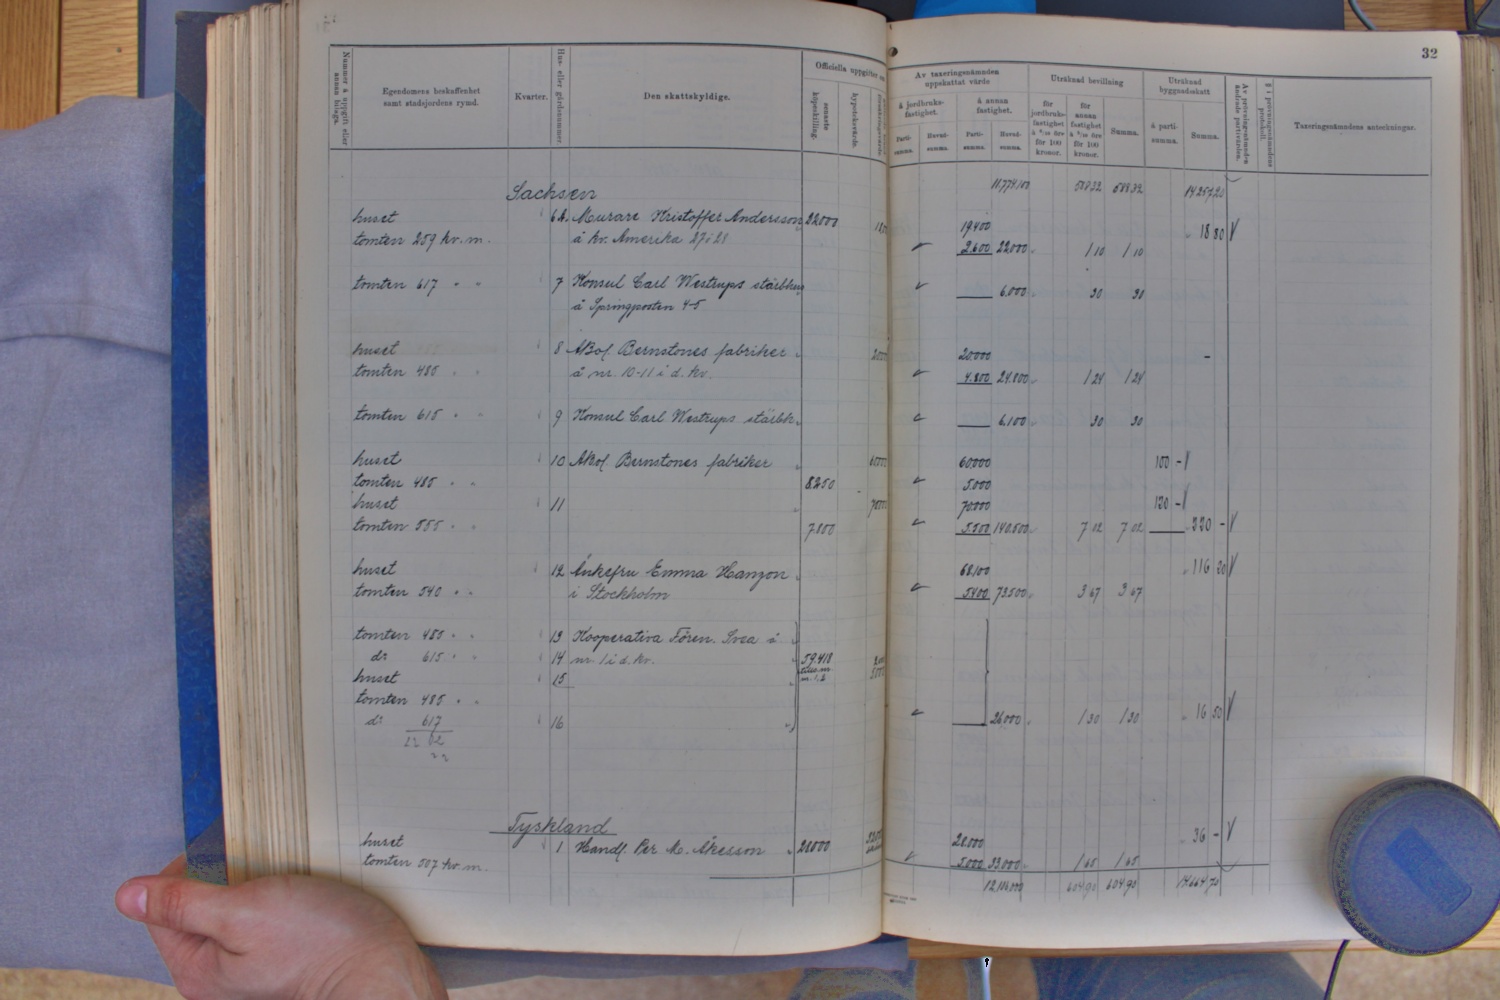 32
Nummer å uppgift eller annan bilaga.
Egendomens beskaffenhet samt stadsjordens rymd.
Kvarter.
Hus- eller gårdsnummer
Den skattskyldige.
Officiella uppgifter om
senaste köpeskilling.
hypoteksvärde.
Av taxeringsnämnden uppskattat värde
å jordbruksfastighet.
å annan fastighet.
Partisumma.
Huvudsumma.
Partisumma.
Huvudsumma.
Uträknad bevillning
för jordbruksfastighet å 6/10 öre för 100 kronor.
för annan fastighet å 5/10 öre för 100 kronor.
Summa.
Uträknad byggnadsskatt
å partisumma.
Summa.
Av prövningsnämnden ändrade partivärden.
§ i prövningsnämndens protokoll.
Taxeringsnämndens anteckningar.
Sachsen
huset 6A. Murare Kristoffer Andersson 22000 19400 18 80
tomten 259 kv.m. å kv. Amerika 27 i 28 2.600 22000 1 10 1 10
tomten 617 " " 7 Konsul Carl Westrups stärbhus 6.000 30 30
å Springposten 4-5
huset 8 ABol. Bernstones fabriker 20000 -
tomten 485 " " å nr. 10-11 i d. kv. 4.800 24.800 1 24 1 24
tomten 615 " " 9 Konsul Carl Westrups stärbh. 6.100 30 30
huset 10 ABol. Bernstones fabriker 60000 60000 100 -
tomten 485 " " 8250 5.000
huset 11 70000 70.000 120 -
tomten 555 " " 7800 5.500 140.500 7 02 7 02 220 -
huset 12 Änkefru Emma Hanzon 68,100 116 20
tomten 540 " " i Stockholm 5400 73500 3 67 3 67
tomten 485 " " 13 Kooperativa Fören. Svea å
do 615 " " 14 nr. 1 i d. kv. 59.418
huset 15
tomten 485 " "
do 617 16 26,000 1 30 1 30 16 50
22 02
Tyskland
huset 1 Handl. Per M. Åkesson 28000 28.000 36 -
tomten 507 kv.m. 5.000 33.000 1 65 1 65
604,90 604,90